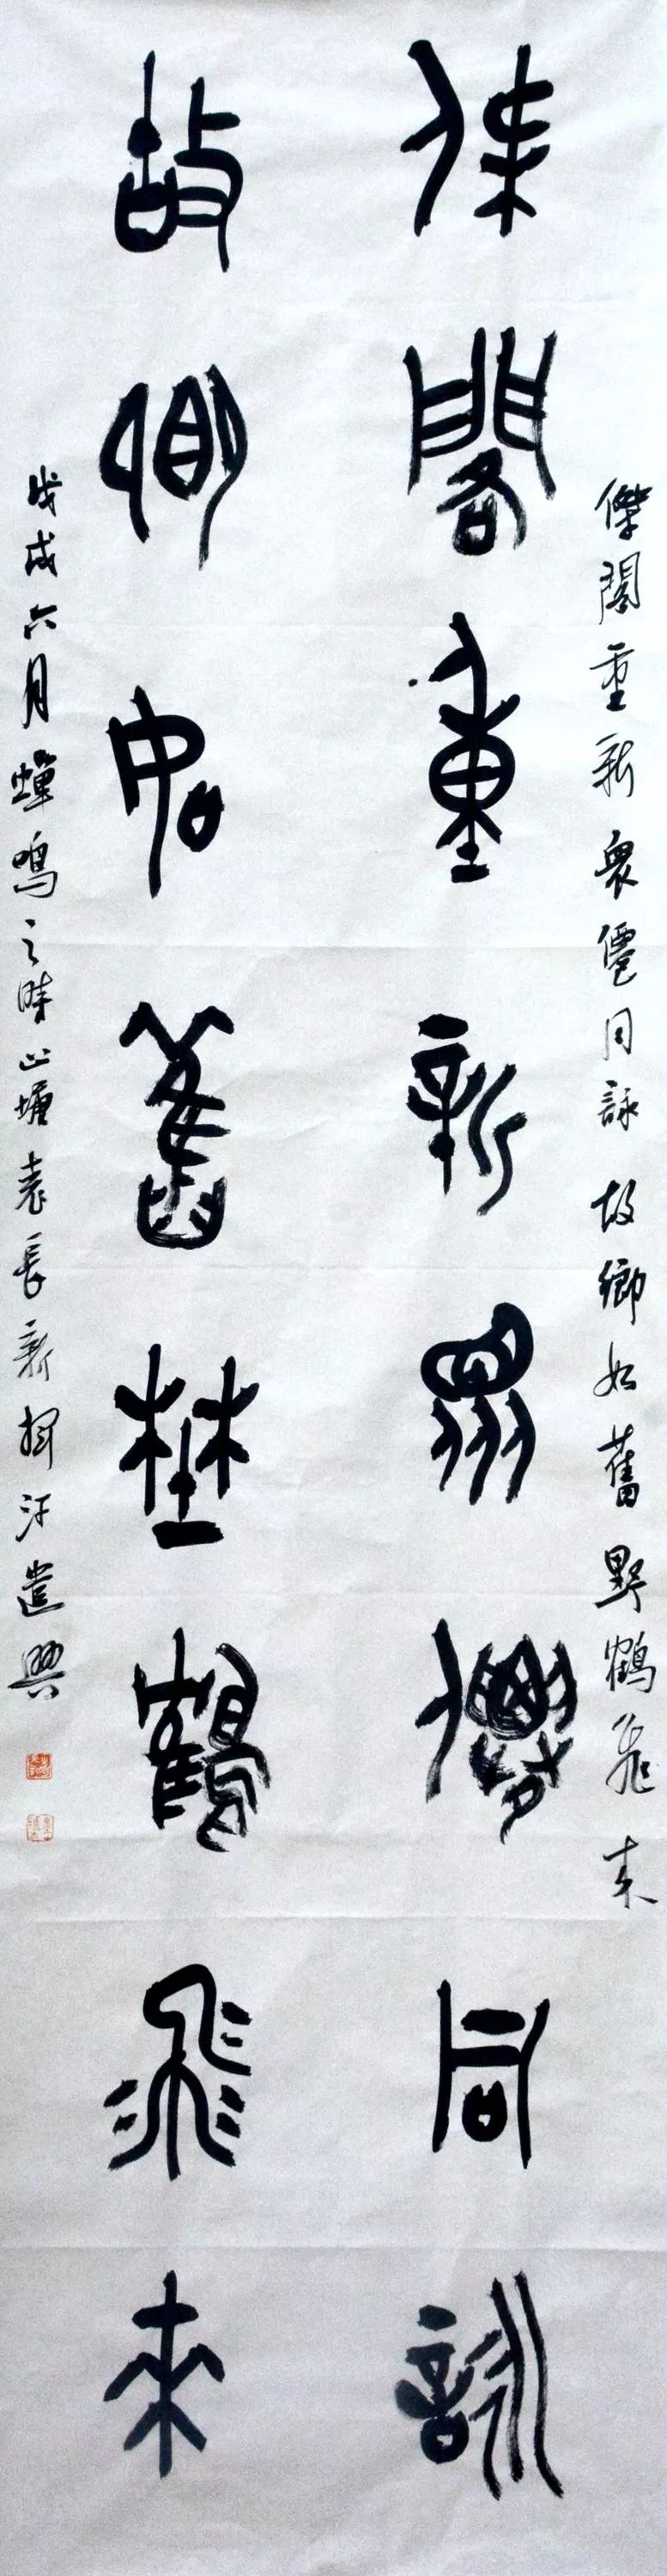 傑閣重新衆僊同詠故鄉如舊野鶴飛来
傑閣重新衆僊同詠
故鄉如舊野鶴飛來
戊戌六月蟬鳴之時山塘袁長新揮汗遣興